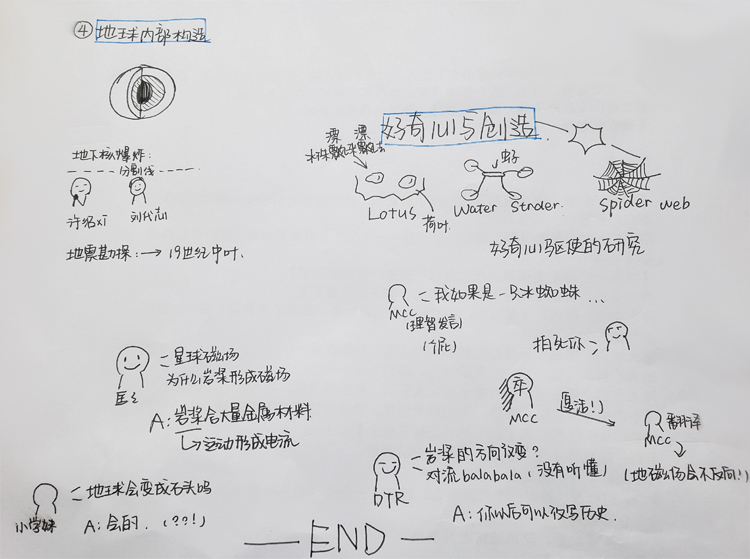 ④ 地球内部构造
地下核爆炸:
分割线
许绍xi 刘代志
地震勘探: → 19世纪中叶.
好奇心与创造
漂漂
Lotus
荷叶
Water Strider.
Spider web
好奇心驱使的研究
我如果是一只水蜘蛛...
MCC
(理智发言)
拍死你
星球磁场
为什么岩浆形成磁场
匡
A: 岩浆含大量金属材料
↳运动形成电流
卒
MCC
复活!)
翻译
MCC
(地磁场会不反向!)
地球会变成石头吗
小学妹
A: 会的. (??!)
岩浆的方向改变?
对流balabala (没有听懂)
DTR
A: 你以后可以改写历史.
END